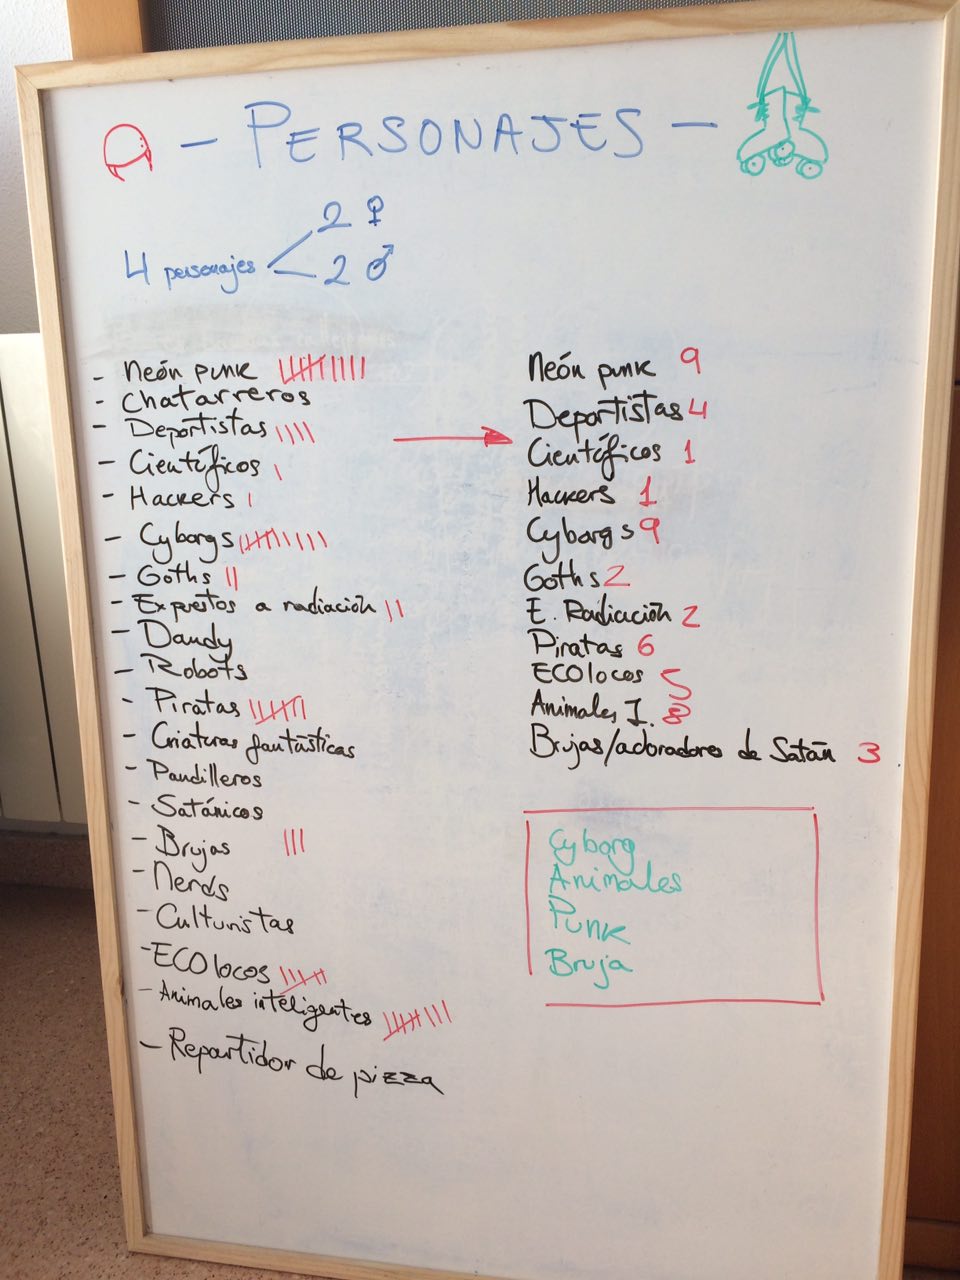 - PERSONAJES -
2 ♀
4 personajes
2 ♂
- Neón punk
- Chatarreros
- Deportistas
- Científicos
- Hackers
- Cyborgs
- Goths
- Expuestos a radiación
- Dandy
- Robots
- Piratas
- Criaturas fantásticas
- Pandilleros
- Satánicos
- Brujas
- Nerds
- Culturistas
- ECOlocos
- Animales inteligentes
- Repartidor de pizza
Neón punk 9
Deportistas 4
Científicos 1
Hackers 1
Cyborgs 9
Goths 2
E. Radiación 2
Piratas 6
ECOlocos 5
Animales I. 8
Brujas/adoradores de Satán 3
Cyborg
Animales
Punk
Bruja